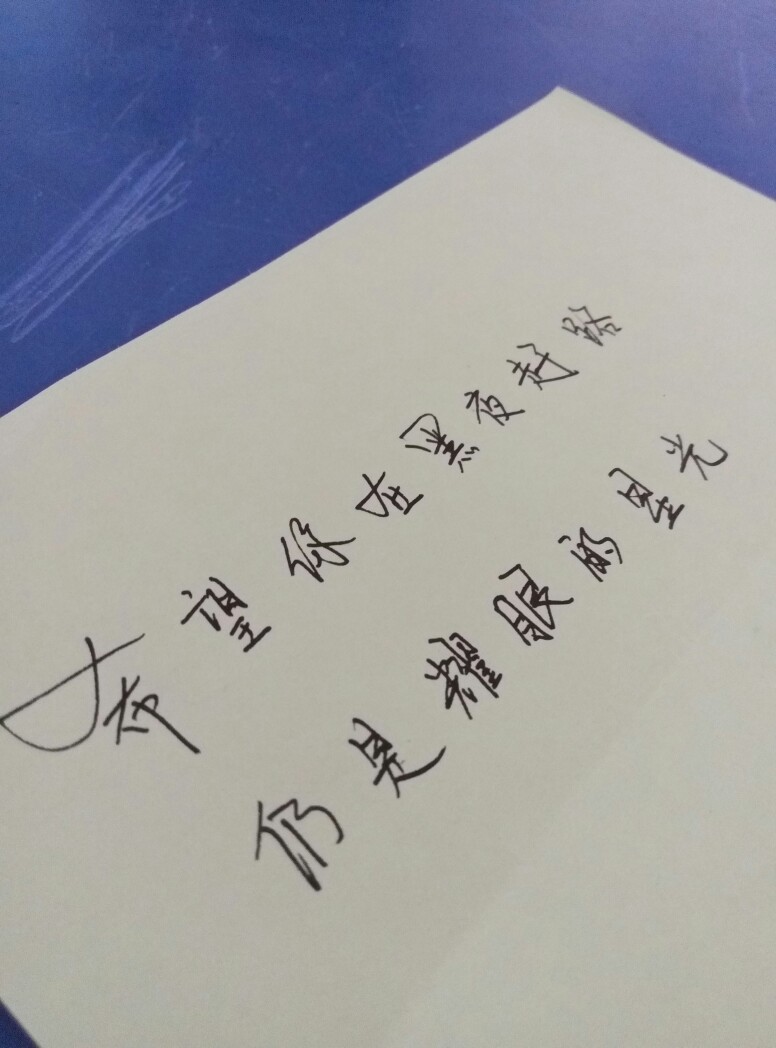 希望你在黑夜赶路
仍是耀眼的星光